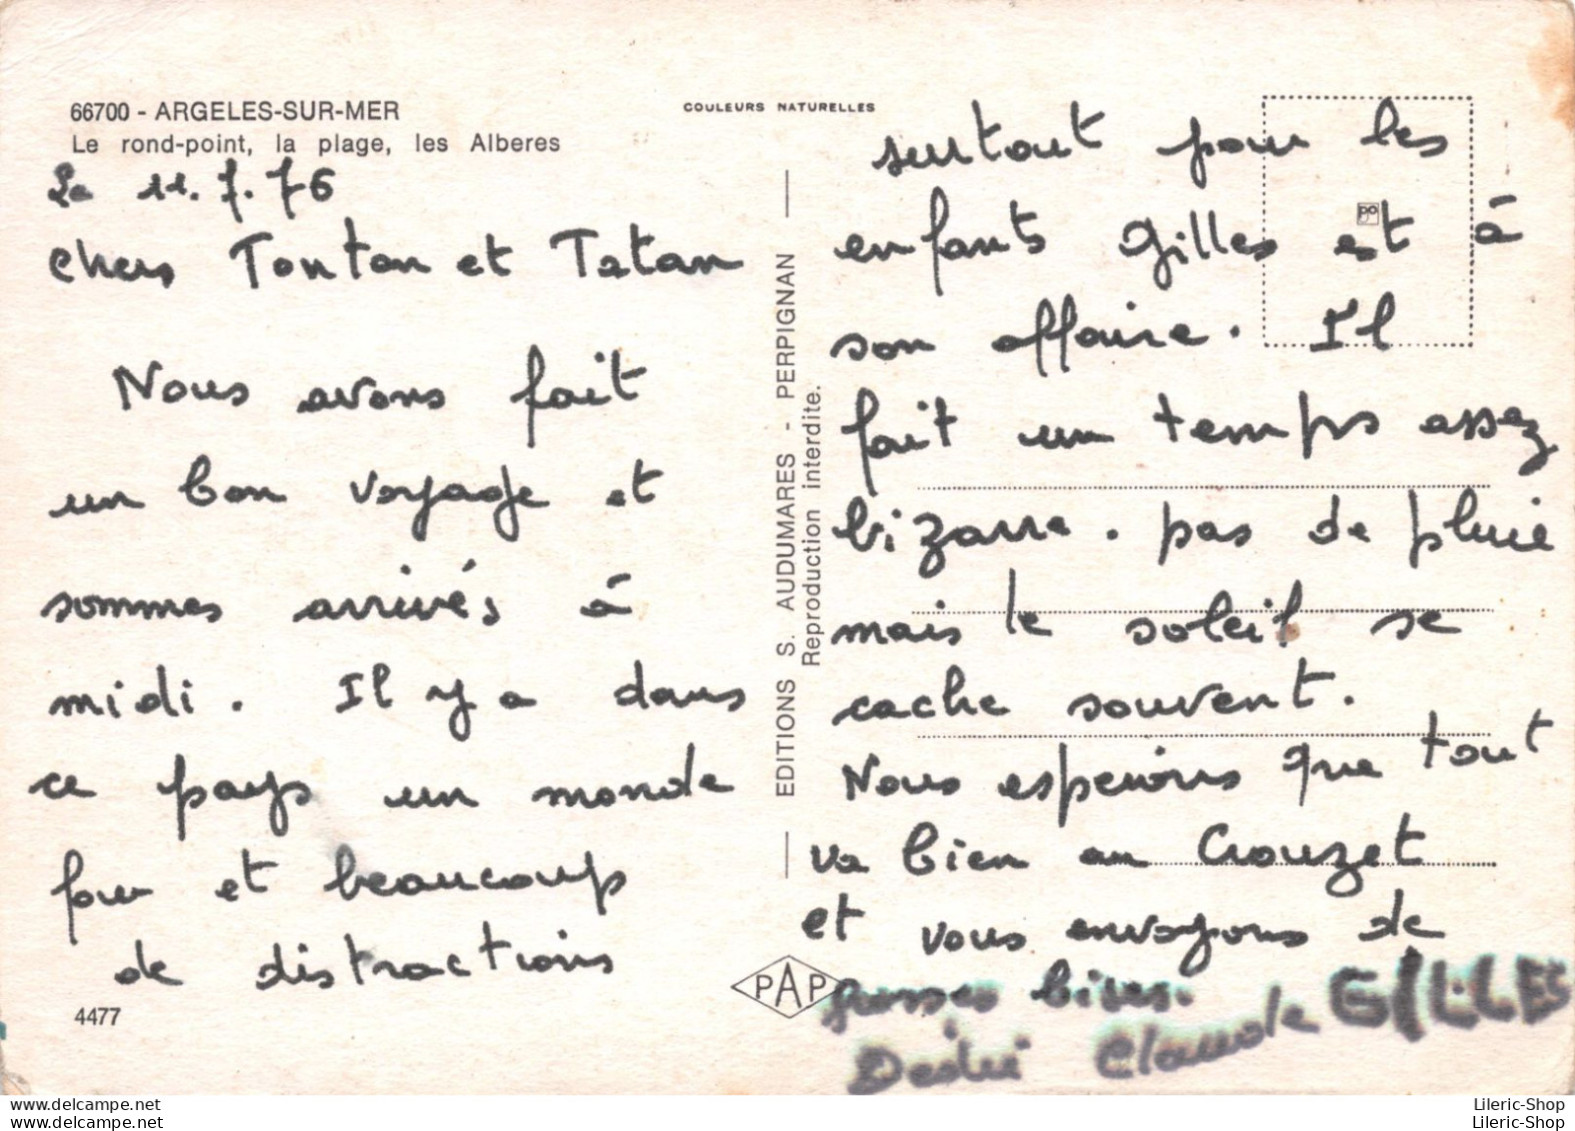 66700 - ARGELES-SUR-MER
Le rond-point, la plage, les Alberes
Le 11.7.76
Chers Tonton et Tatan
Nous avons fait
un bon voyage et
sommes arrivés à
midi. Il y a dans
ce pays un monde
fou et beaucoup
de distractions
4477
COULEURS NATURELLES
EDITIONS S. AUDUMARES - PERPIGNAN
Reproduction interdite.
PAP
surtout pour les
enfants Gilles est à
son affaire. Il
fait un temps assez
bizarre. pas de pluie
mais le soleil se
cache souvent.
Nous esperons que tout
va bien au Crouzet
et vous envoyons de
grosses bises.
Dédé Claude GILLES
www.delcampe.net
www.delcampe.net
Lileric-Shop
Lileric-Shop